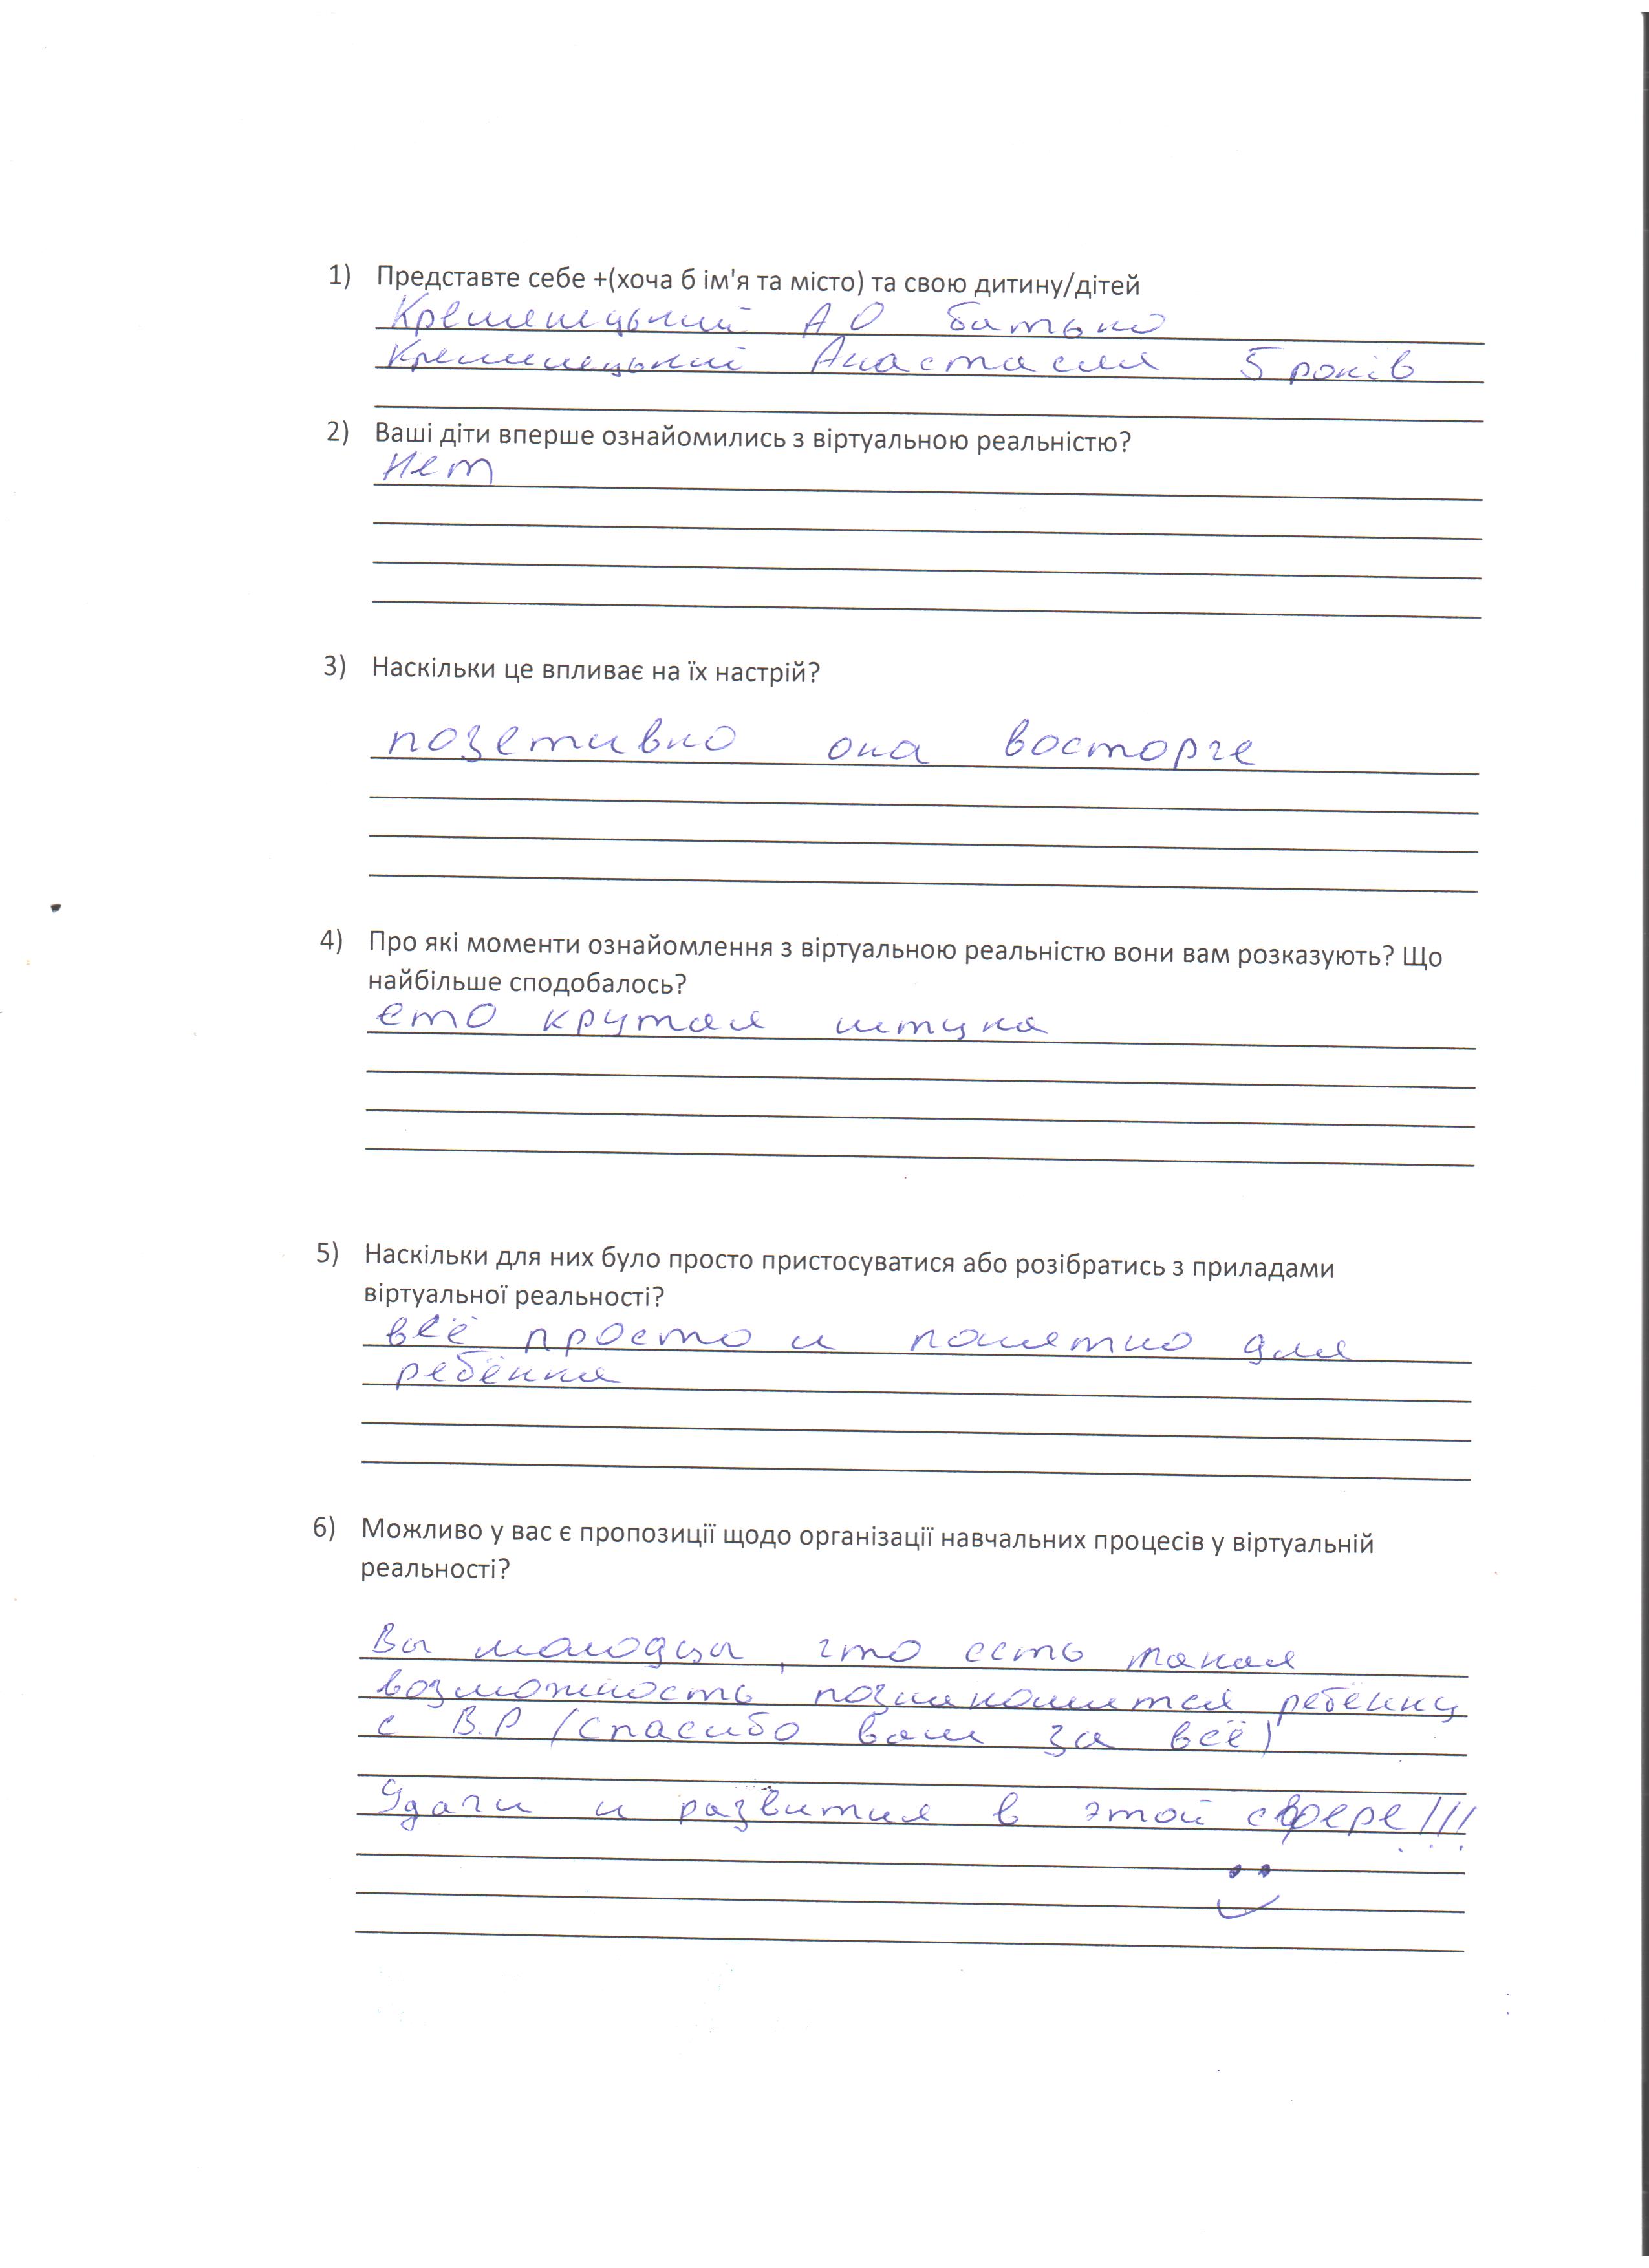 1) Представте себе +(хоча б ім'я та місто) та свою дитину/дітей
Кременецький А О батько
Кременецький Анастасия 5 років
2) Ваші діти вперше ознайомились з віртуальною реальністю?
Нет
3) Наскільки це впливає на їх настрій?
позетивно она восторге
4) Про які моменти ознайомлення з віртуальною реальністю вони вам розказують? Що
найбільше сподобалось?
ето крутая штука
5) Наскільки для них було просто пристосуватися або розібратись з приладами
віртуальної реальності?
всё просто и понятно для
ребёнка
6) Можливо у вас є пропозиції щодо організації навчальних процесів у віртуальній
реальності?
Вы молодцы, что есть такая
возможность познакомится ребёнку
с В.Р (спасибо вам за всё)
Удачи и развития в этой сфере!!!